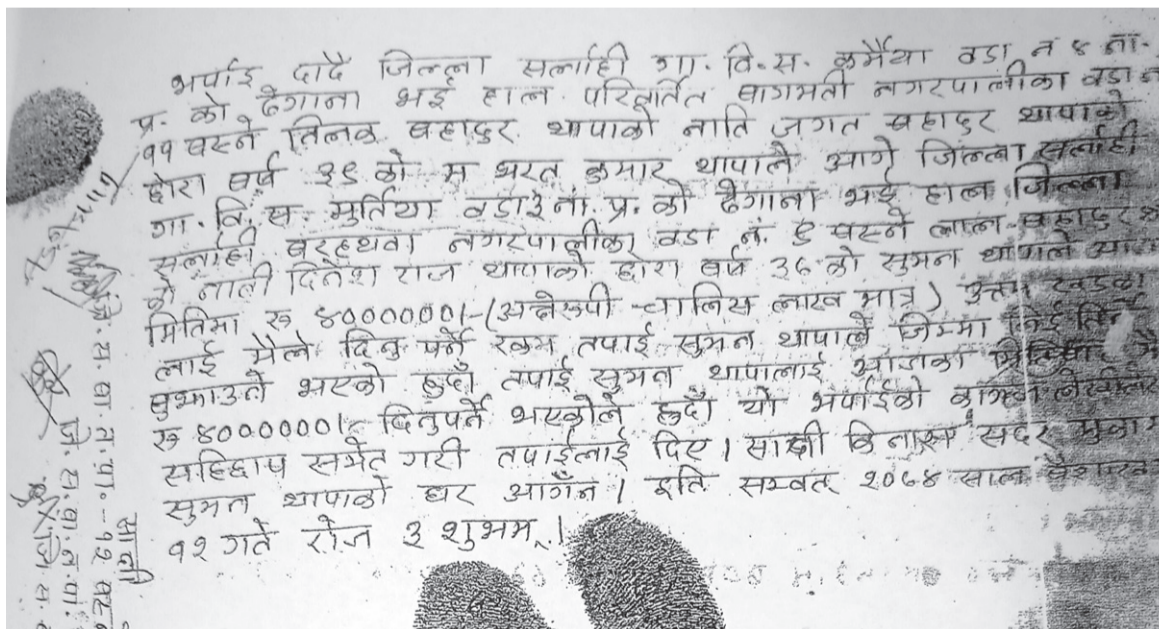 भर्पाइ दादै जिल्ला सर्लाही गा. वि. स. कर्मैया वडा नं ४ ना.
प्र. को ठेगाना भई हाल परिवर्तित बागमती नगरपालीका वडा नं
११ बस्ने तिलक बहादुर थापाको नाति जगत बहादुर थापाको
छोरा बर्ष ३९ को म भरत कुमार थापाले आगे जिल्ला सर्लाही
गा. वि. स. मुर्तिया वडा ३ ना. प्र. को ठेगाना भई हाल जिल्ला
सर्लाही बरहथवा नगरपालीका वडा नं. ६ बस्ने लाल बहादुर
को नाती दिनेश राज थापाको छोरा बर्ष ३६ को सुमन थापाले
मितिमा रु ४०००००० ।- (अक्षेरुपी चालिस लाख मात्र) उत्तम खड्का
लाई मैले दिनु पर्ने रकम तपाई सुमन थापाले जिम्मा लिई तिर्ने
बुझाउने भएको हुदाँ तपाई सुमन थापालाई आजका मितिमा
रु ४०००००० ।- दिनुपर्ने भएकोले हुदाँ यो भर्पाईको कागज
सहिछाप समेत गरी तपाईलाई दिए । साक्षी किनारा सदर मुकाम
सुमन थापाको घर आगँन । इति सम्वत् २०७४ साल बैशाख
१२ गते रोज ३ शुभम् ।
साक्षी
जि. स. बा. न. पा. - १२ बस्ने
जि. स. बा. न. पा.